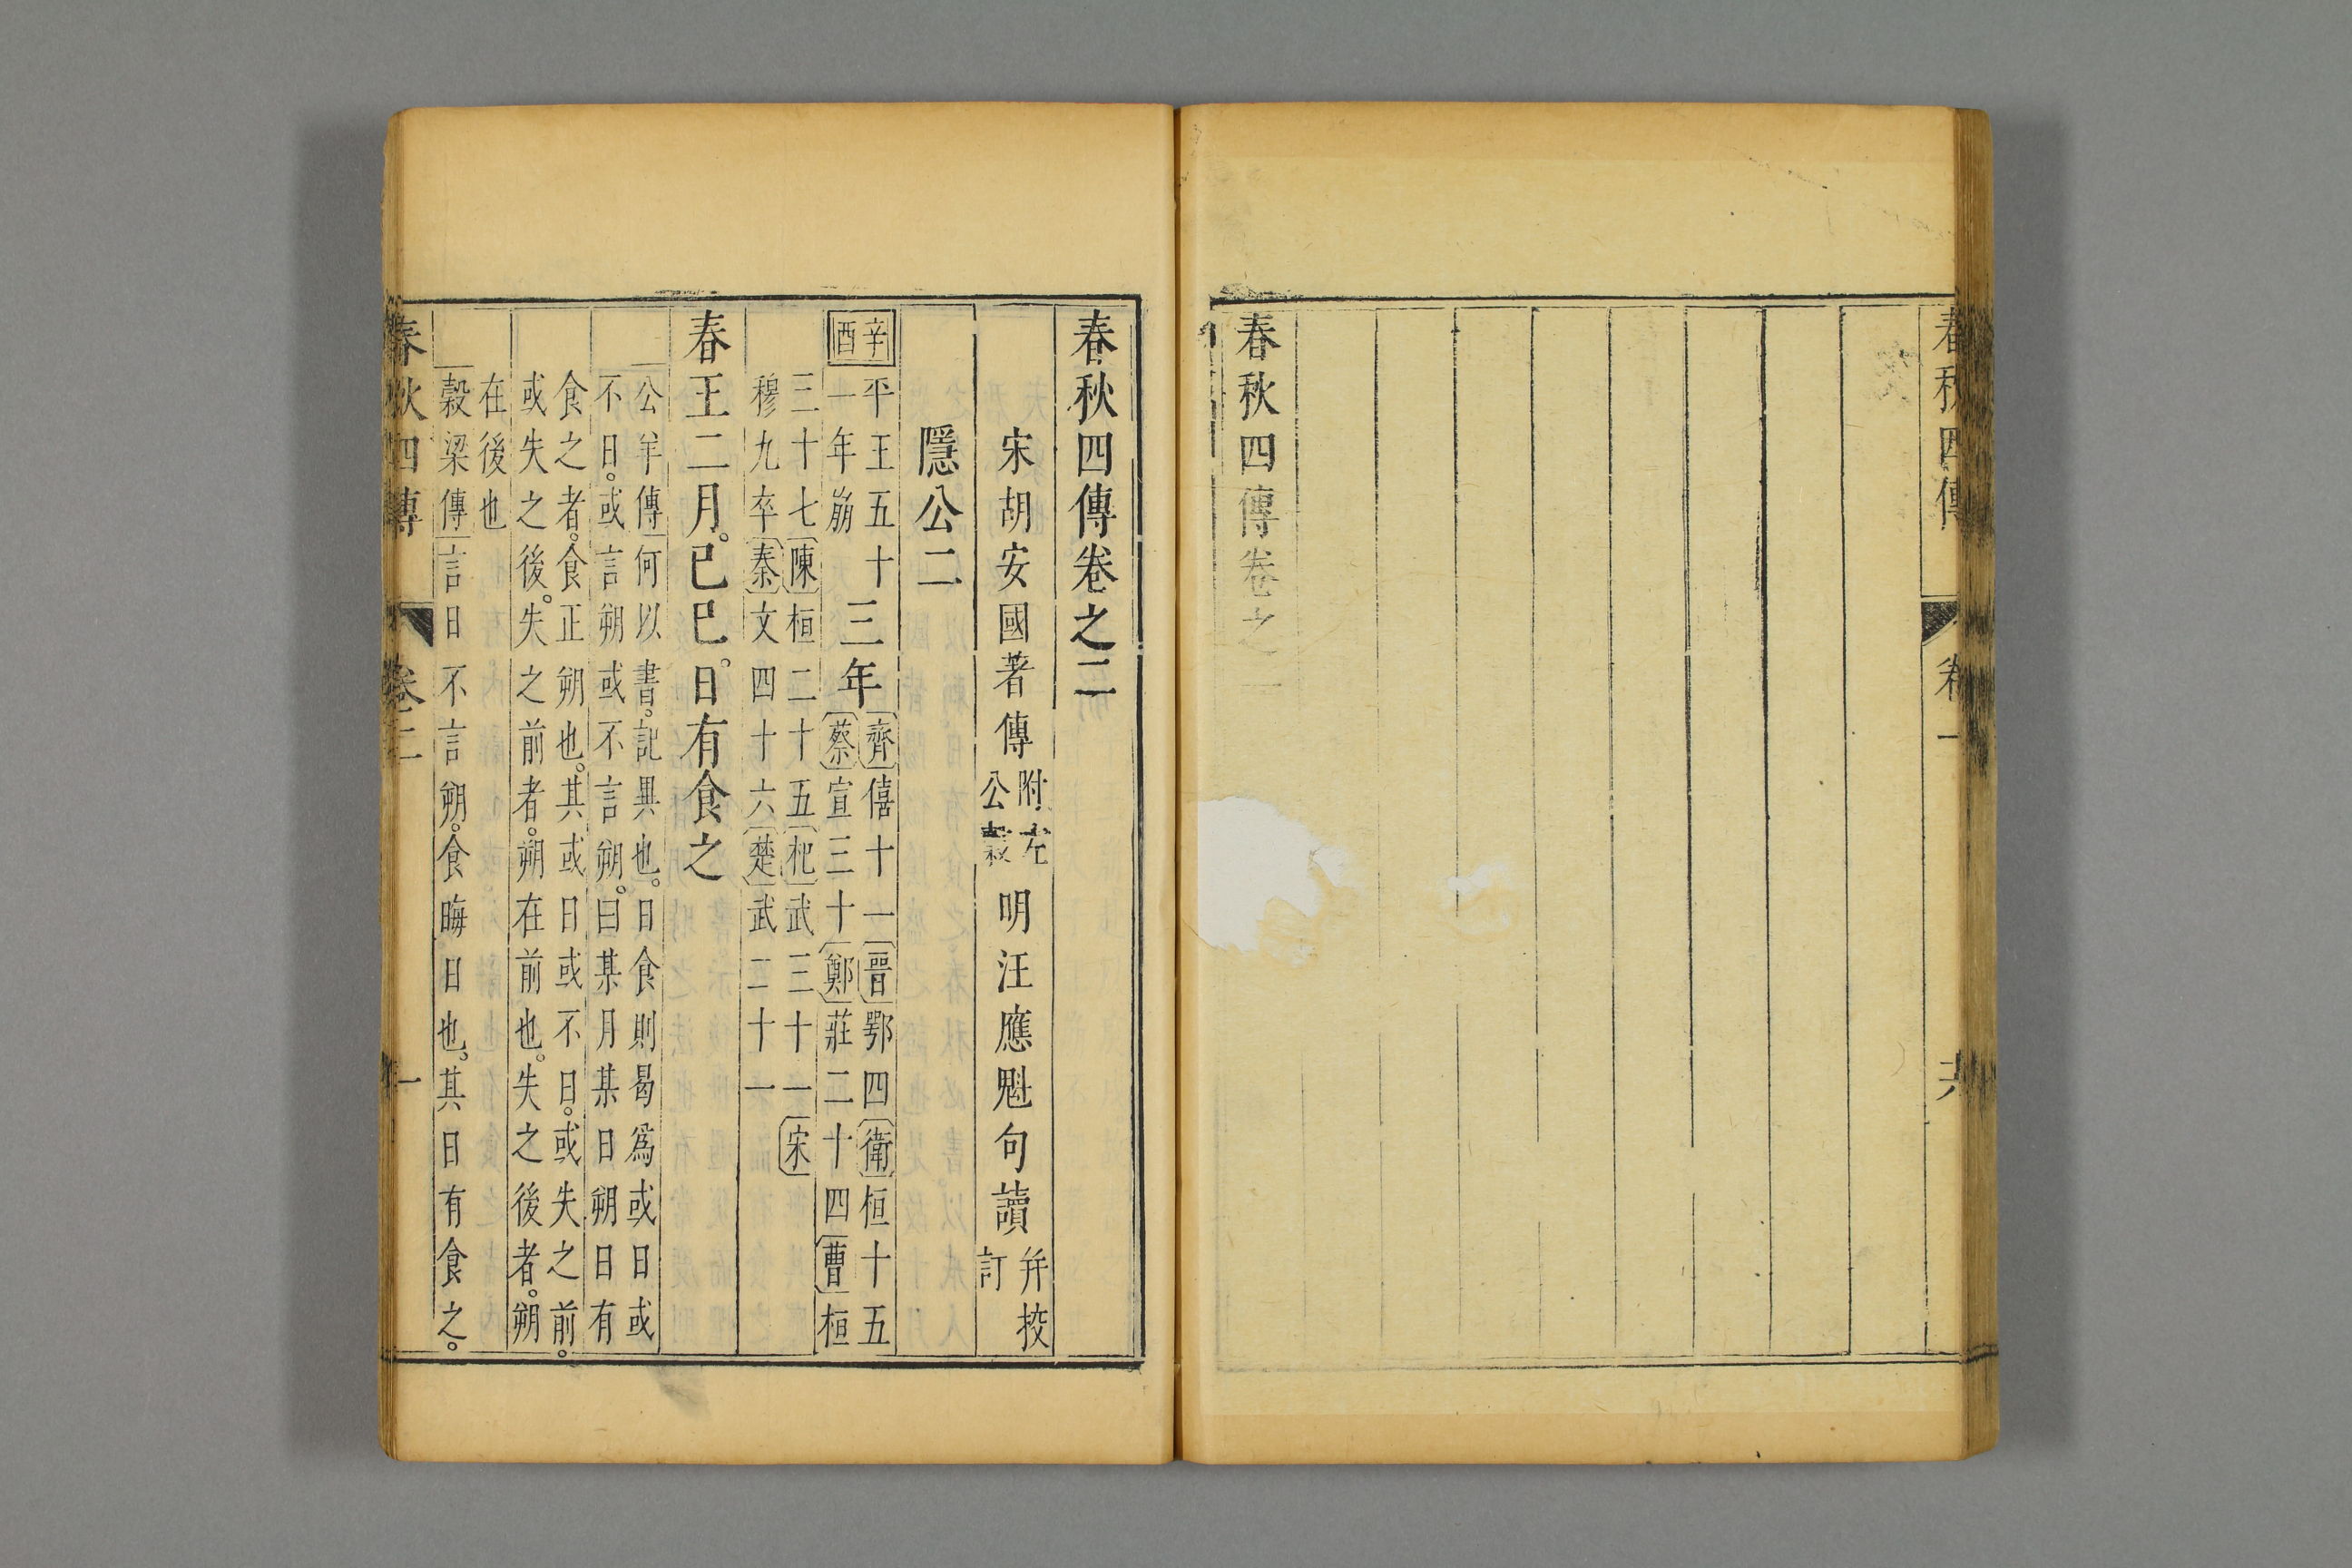 春秋四傳
卷一
春秋四傳卷之一
春秋四傳卷之二
宋胡安國著傳附左公穀明汪應魁句讀并挍訂
隱公二
辛酉平王五十一年崩三年齊僖十一晉鄂四衛桓十五蔡宣三十鄭莊二十四曹桓
三十七陳桓二十五杞武三十一宋穆九卒秦文四十六楚武二十一
春王二月。已巳。日有食之
公羊傳何以書。記異也。日食則曷爲或日或
不日。或言朔或不言朔。曰某月某日朔日有
食之者。食正朔也。其或日或不日。或失之前。
或失之後。失之前者。朔在前也。失之後者。朔
在後也
穀梁傳言日不言朔。食晦日也。其日有食之。
春秋四傳
卷二
一